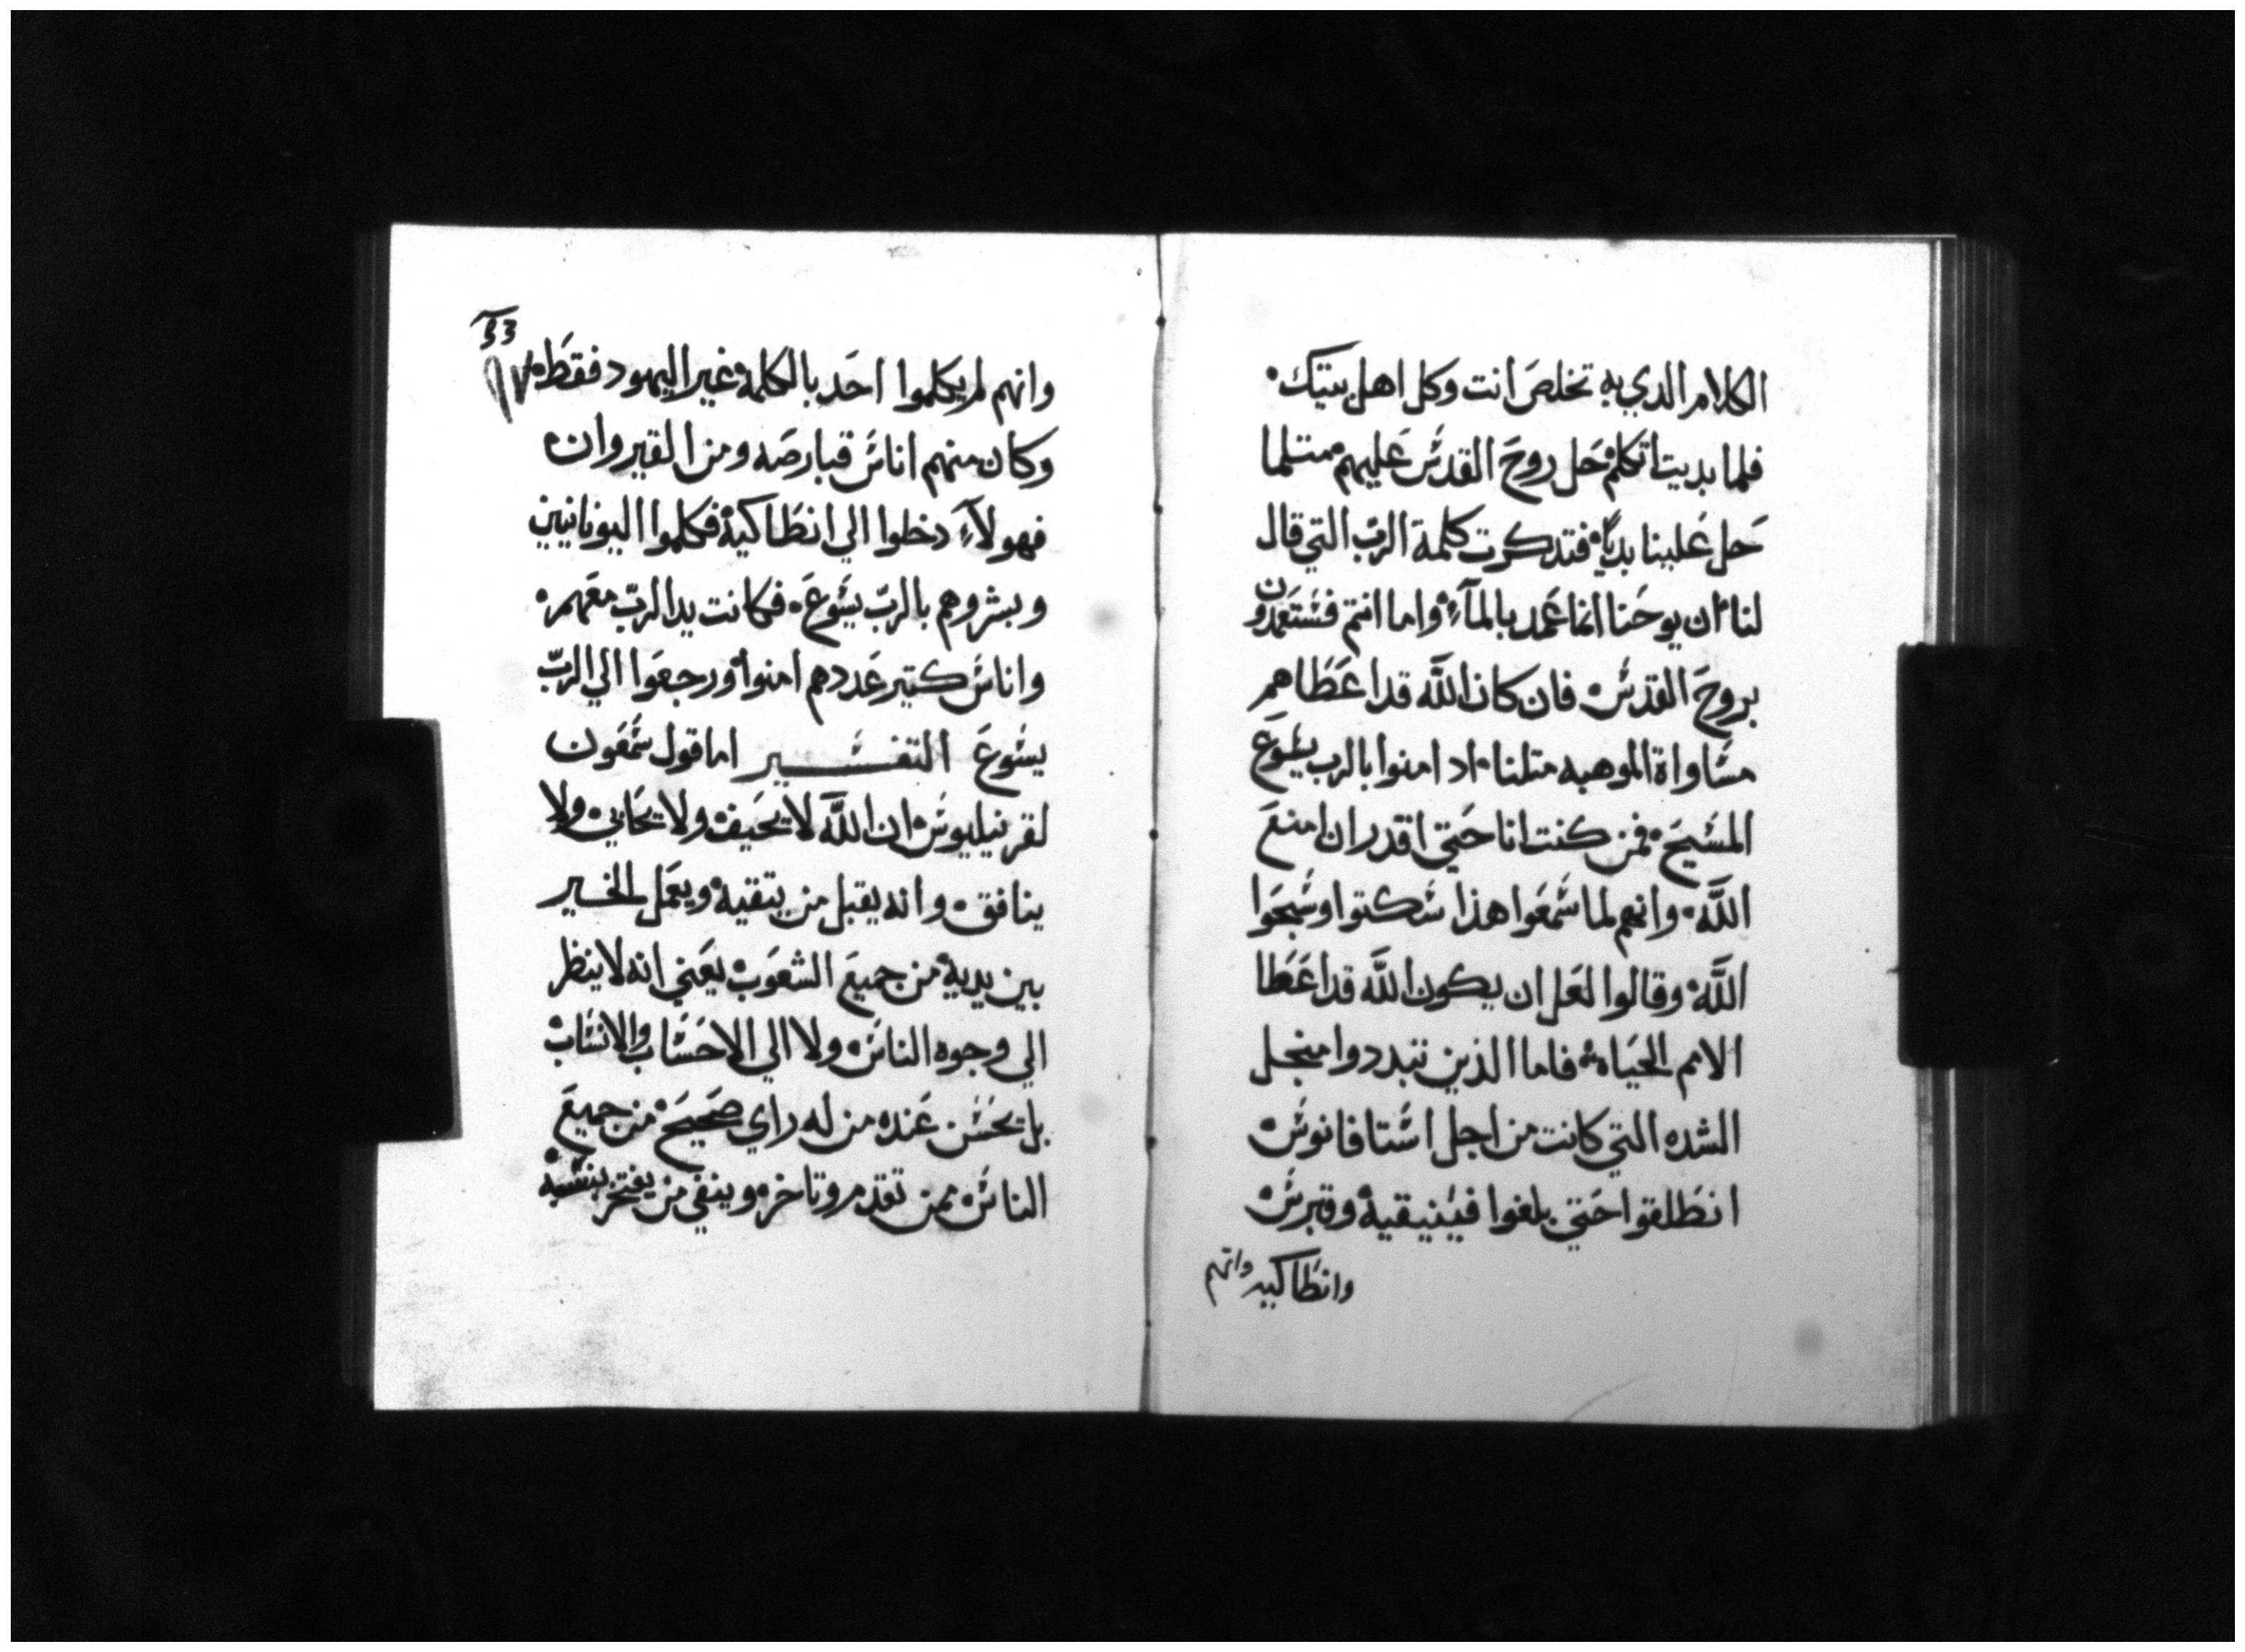 الكلام الدي به تخلص انت وكل اهل بيتك
فلما بديت اتكلم حل روح القدس عليهم متلما
حل علينا بديًا فتدكرت كلمة الرب التي قال
لنا ان يوحنا انما عمد بالمآء واما انتم فستعمدون
بروح القدس فان كان اللّه قد اعطاهم
مساواة الموهبه متلنا اد امنوا بالرب يسوع
المسيح فمن كنت انا حتي اقدر ان امنع
اللّه وانهم لما سمعوا هذا سكتوا وسبحوا
اللّه وقالوا لعل ان يكون اللّه قد اعطا
الامم الحياه فاما الذين تبددوا منجل
الشده التي كانت من اجل استافانوس
انطلقوا حتي بلغوا فينيقية وقبرس
وانطاكيه وانهم
وانهم لم يكلموا احد بالكلمه غير اليهود فقط
وكان منهم اناس قبارصه ومن القيروان
فهولآء دخلوا الي انطاكية فكلموا اليونانيين
وبشروهم بالربّ يسوع فكانت يد الربّ معهم
واناس كتير عددهم امنوا ورجعوا الي الربّ
يسوع التفسير اما قول شمعون
لقرنيليوس ان اللّه لا يحيف ولا يحابي ولا
ينافق وانه يقبل من يتقيه ويعمل الخير
بين يديه من جميع الشعوب يعني انه لا ينظر
الي وجوه الناس ولا الي الاحساب والانساب
بل يحسن عنده من له راي صحيح من جميع
الناس ممن تقدم وتاخر وينفي من يفتخر بنسبه